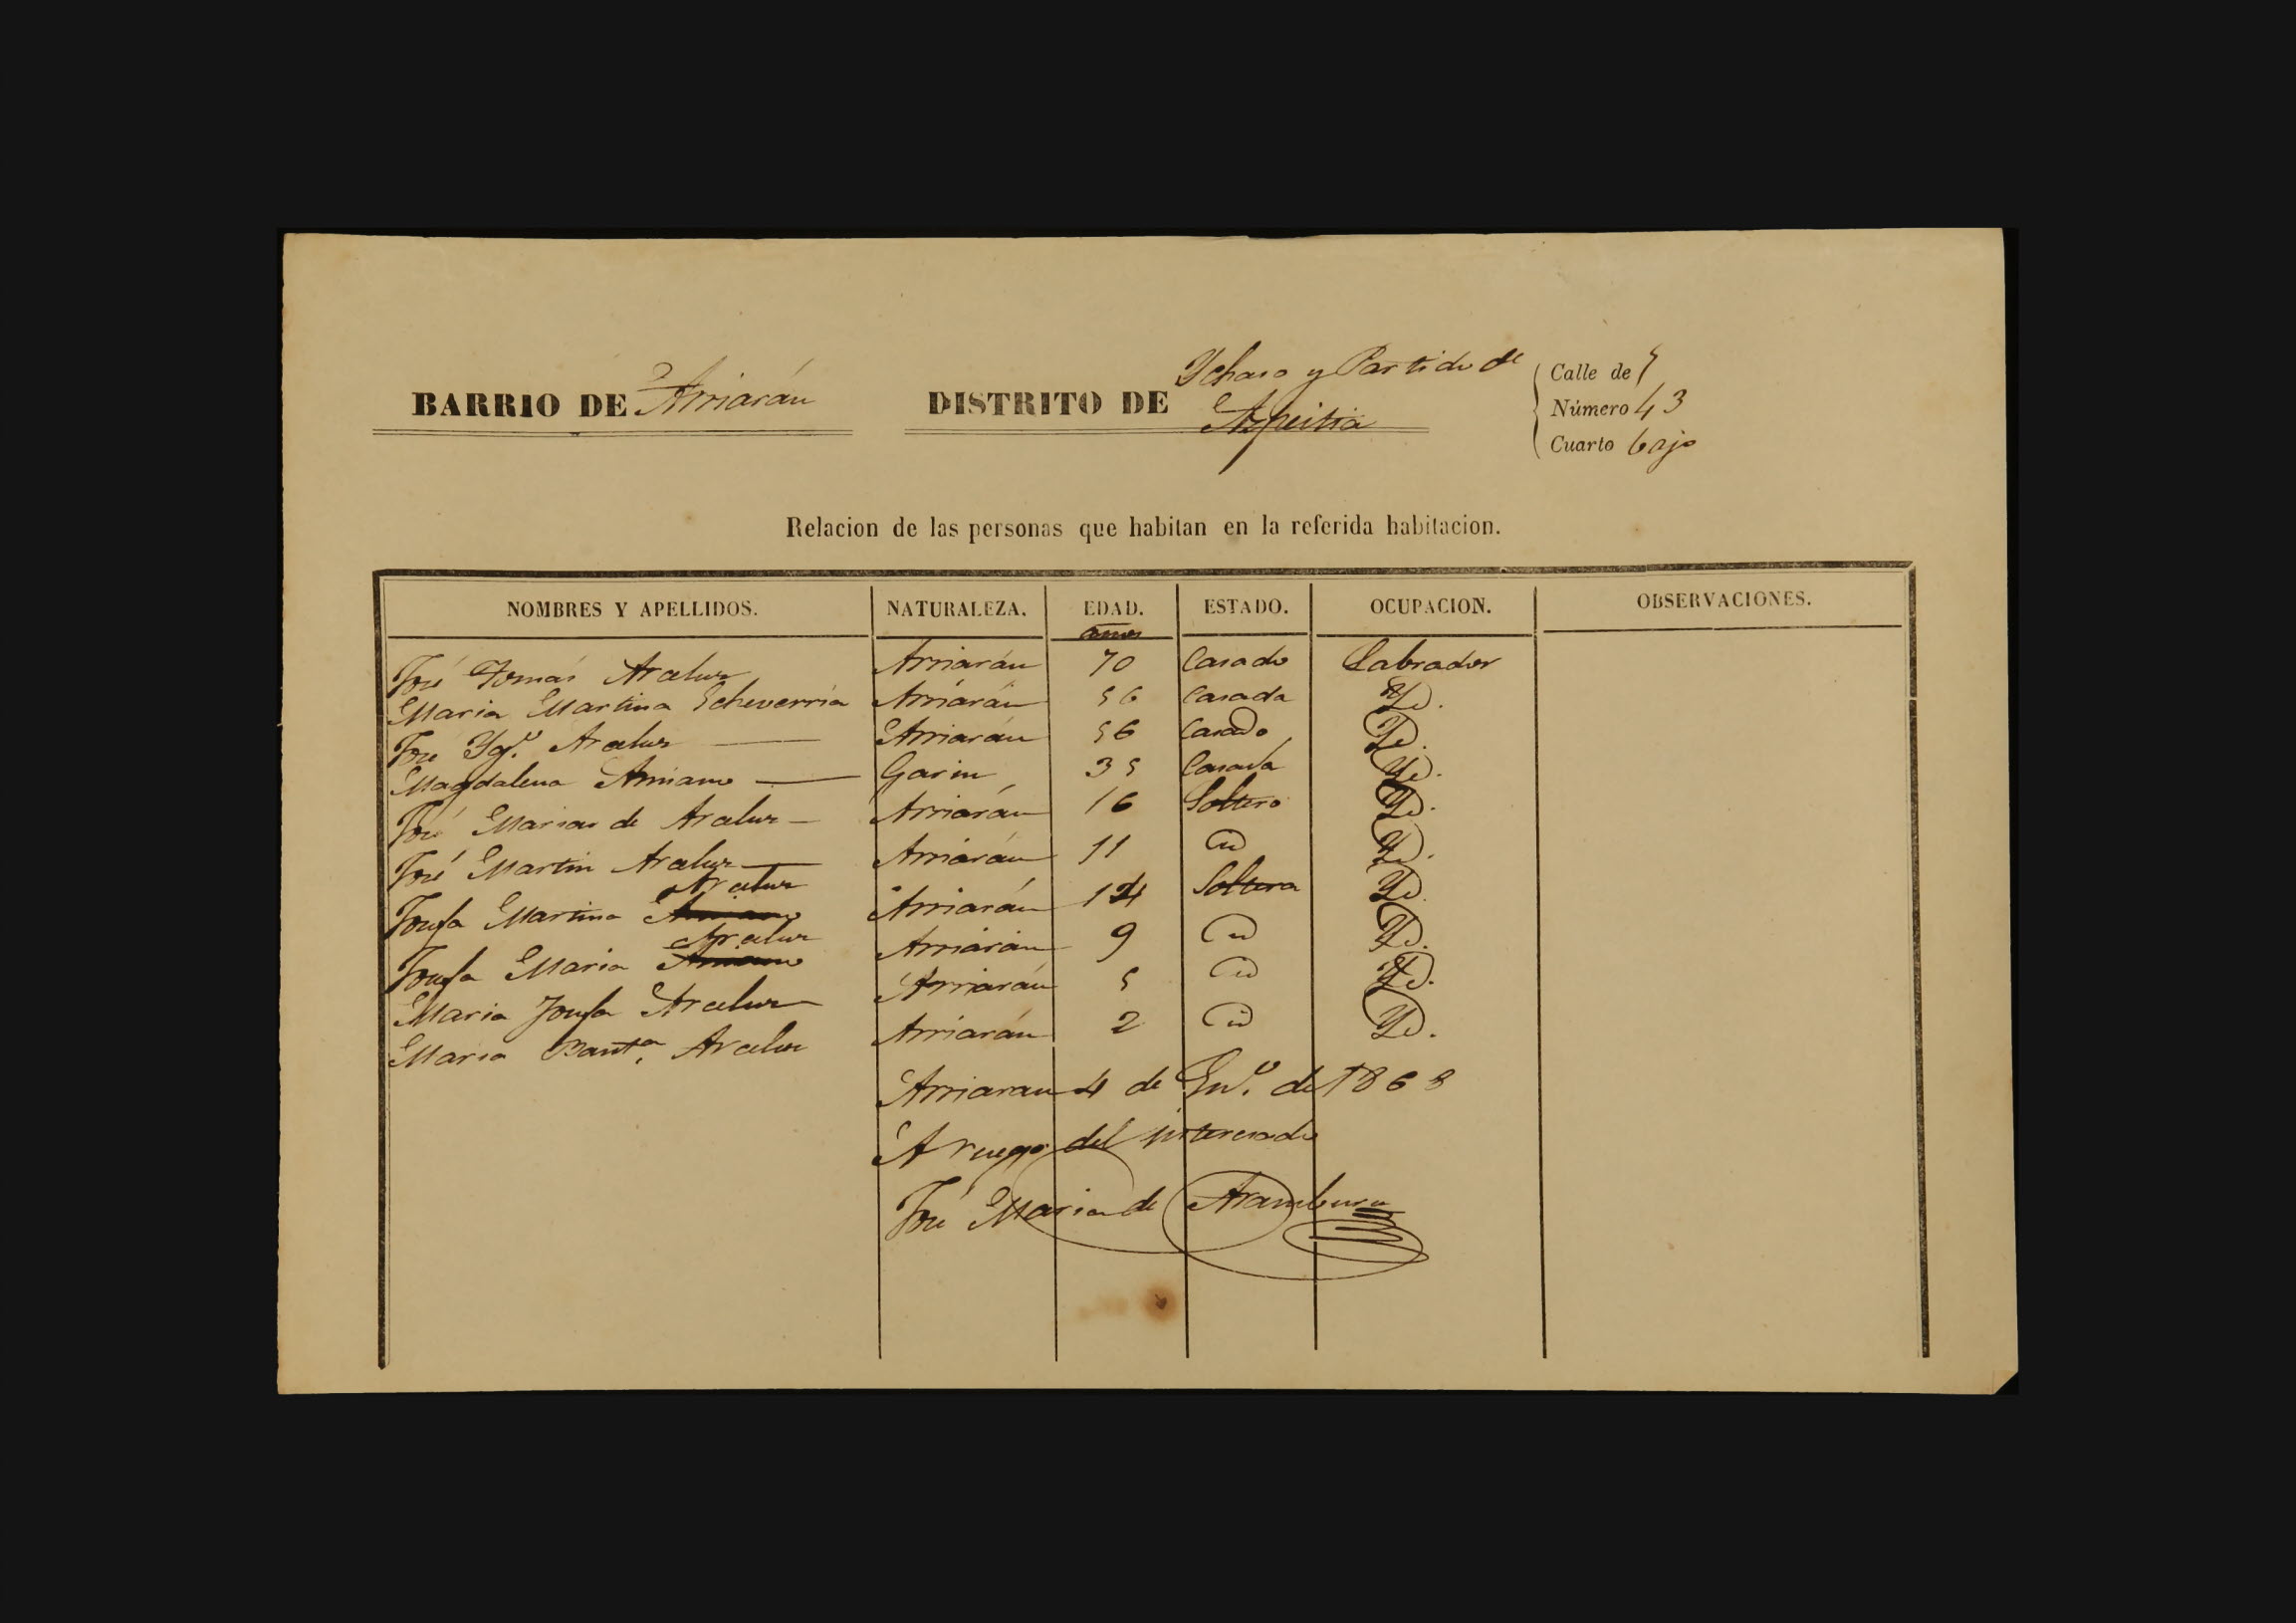 BARRIO DE Arriarán
DISTRITO DE Ychaso y Partido de
Azpeitia
Calle de
Número 43
Cuarto bajo
Relacion de las personas que habitan en la referida habitacion.
NOMBRES Y APELLIDOS. NATURALEZA. EDAD. ESTADO. OCUPACION. OBSERVACIONES.
años
José Tomás Aralur Arriarán 70 Casado Labrador
Maria Martina Echeverria Arriarán 56 Casada Yd.
José Ygº. Aralur Arriarán 56 Casado Yd.
Magdalena Amiano Garin 35 Casada Yd.
José Maria de Aralur Arriarán 16 Soltero Yd.
José Martin Aralur Arriarán 11 Yd.
Aralur
Josefa Martina Arriarán Soltera Yd.
Aralur
Josefa Maria Arriarán 9 Yd.
Maria Josefa Aralur Arriarán 5 Yd.
Maria Bautª. Aralur Arriarán 2 Yd.
Arriaran 4 de Enº. de 1868
A ruego del interesado
José Maria de Aramburu